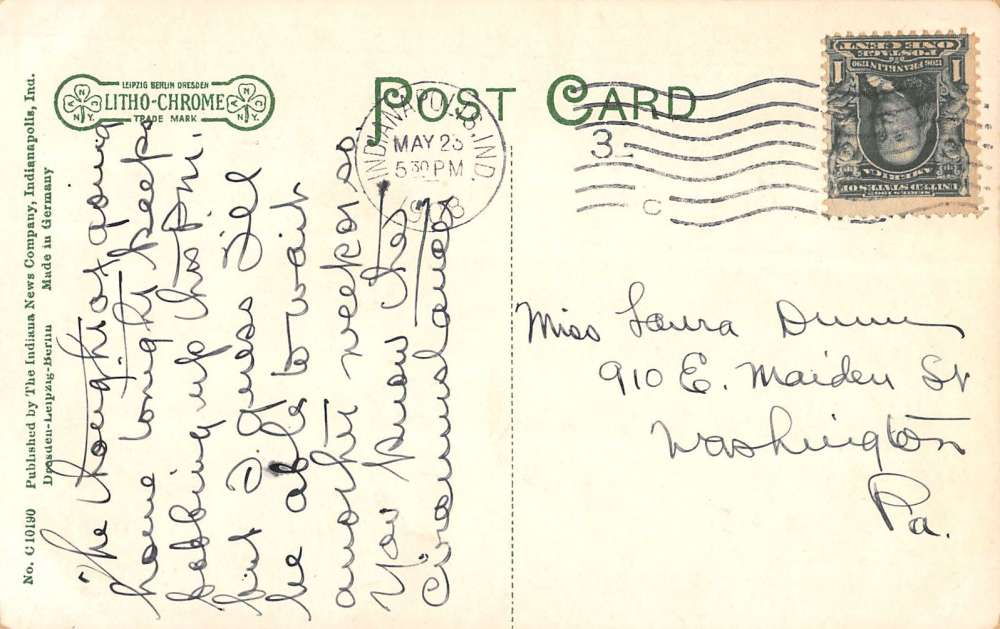 LEIPZIG BERLIN DRESDEN
LITHO-CHROME
TRADE MARK
POST CARD
INDIANAPOLIS, IND.
MAY 23
5 30 PM
1908
3
C
ONE CENT
POSTAGE
1706 FRANKLIN 1790
1 1
UNITED STATES OF
AMERICA
SERIES 1902
The thought of going
home tonight keeps
bobbing up his Pm.
but I guess I'll
be able to wait
another week or so.
You know the
Circumstances
Miss Laura Dunn
910 E. Maiden St
Washington
Pa.
No. C 10190 Published by The Indiana News Company, Indianapolis, Ind.
Dresden-Leipzig-Berlin Made in Germany